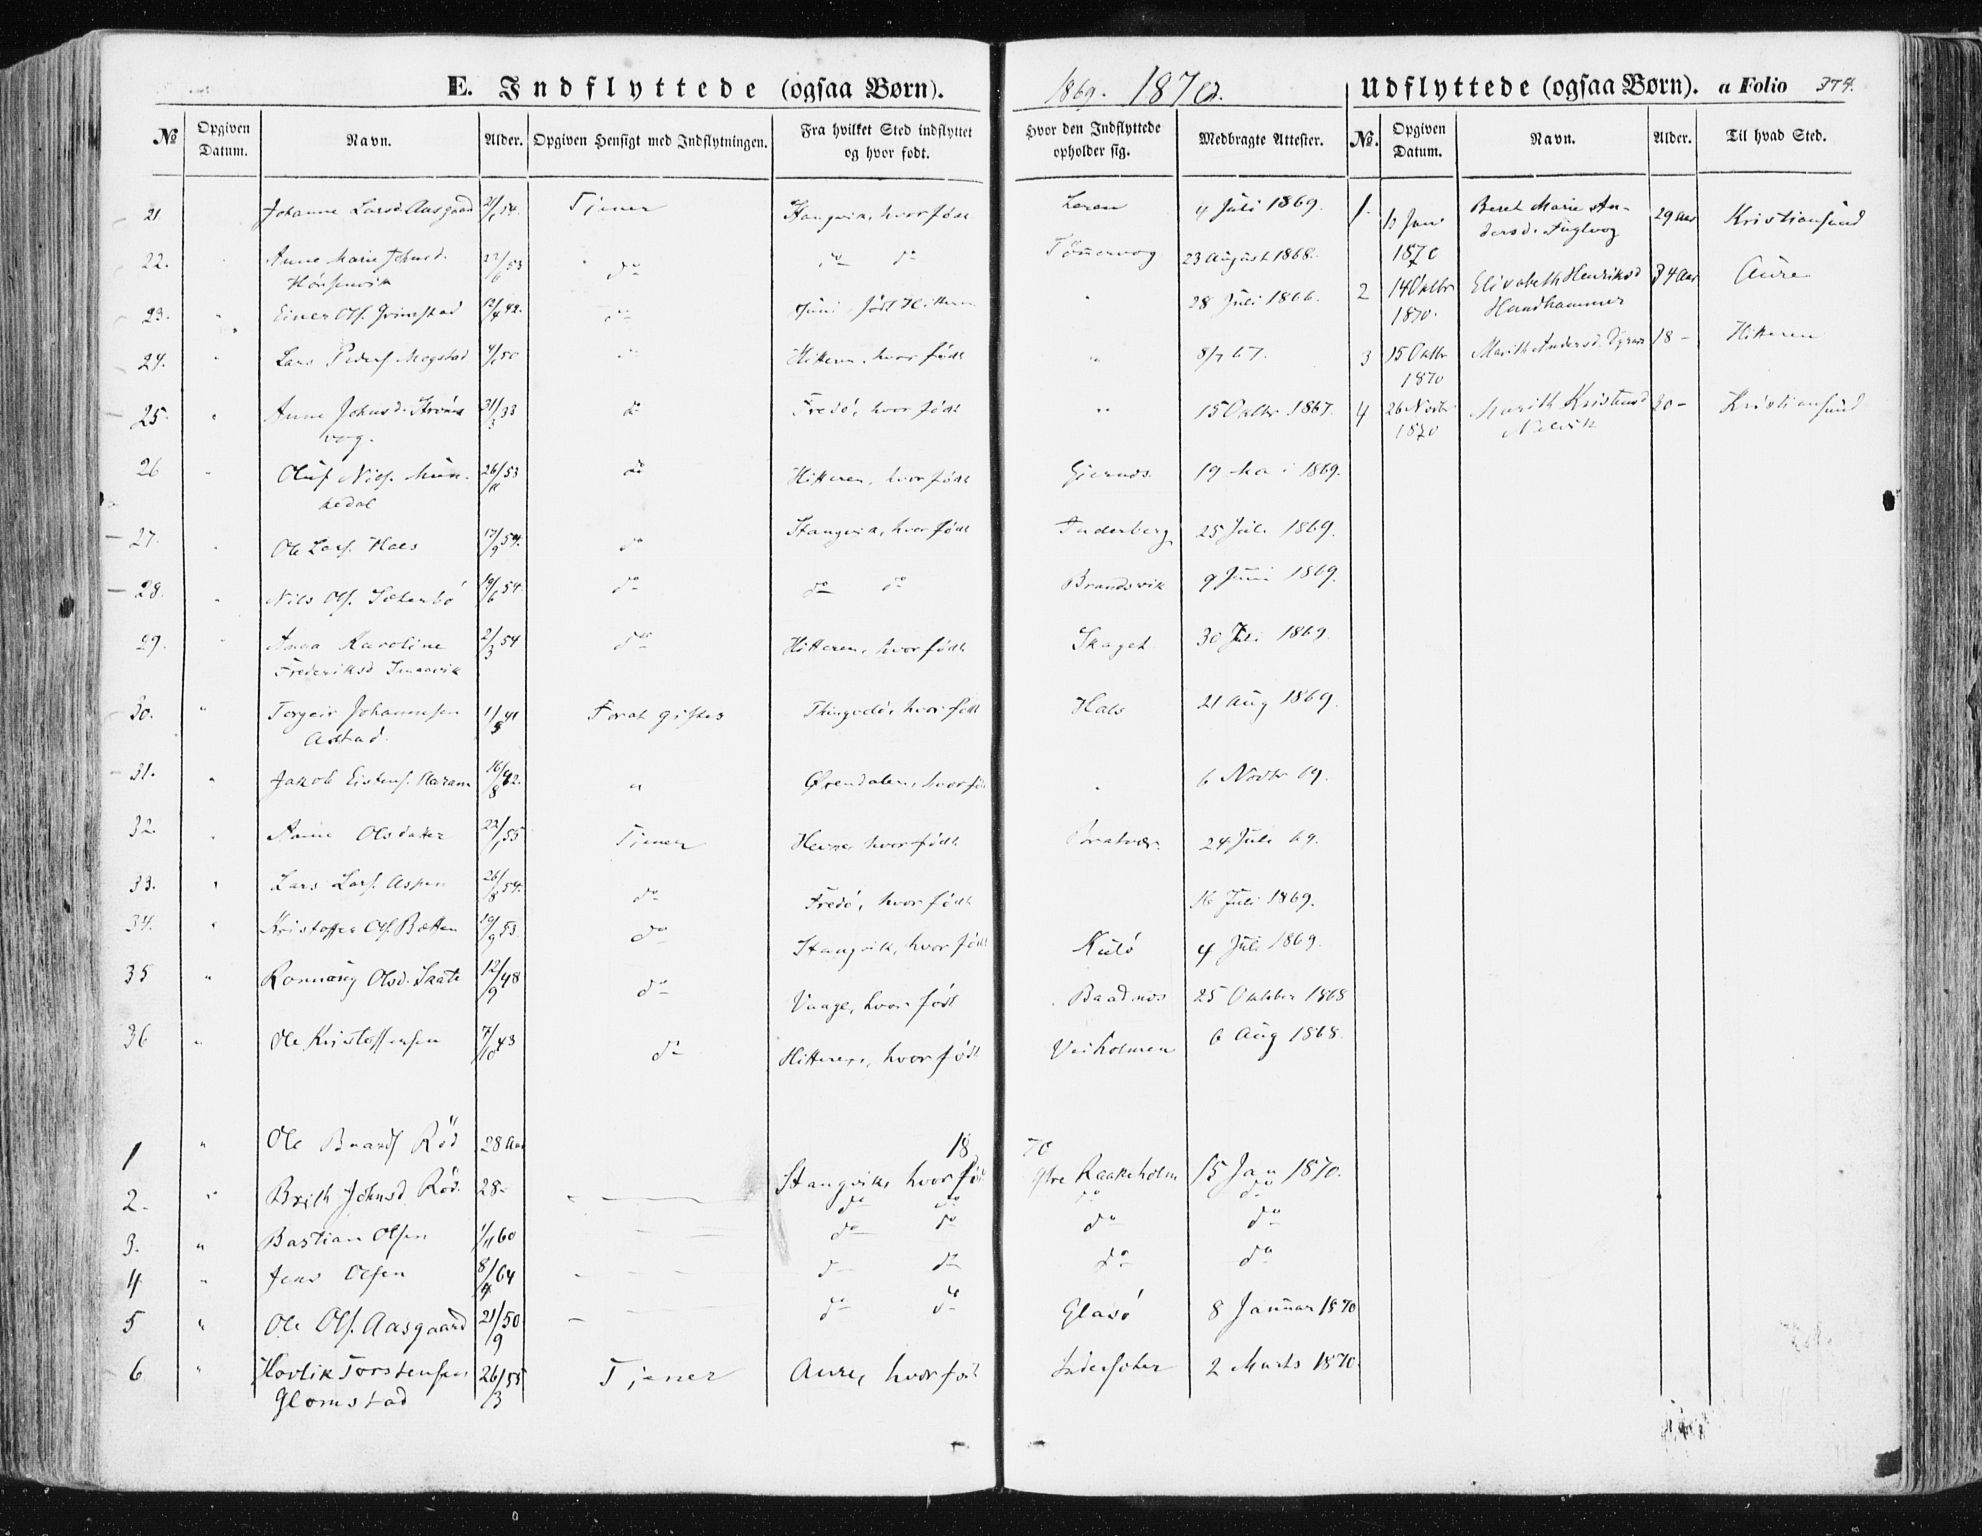 E. Indflyttede (ogsaa Børn).
1869. 1870.
Udflyttede (ogsaa Børn). a Folio 374.
No Opgiven Datum. Navn. Alder. Opgiven Hensigt med Indflytningen. Fra hvilket Sted indflyttet og hvor født. Hvor den Indflyttede opholder sig. Medbragte Attester.
No. Opgiven Datum. Navn. Alder. Til hvad Sted.
21 Johanne Larsd. Aasgaard 54. Tjener Stangvik, hvor født Leren 4 Juli 1869.
22. Anne Marie Johnsd. 22/6 53 do do do Tømmervog 23 August 1868.
23. Einer Ols. Grimstad 12/4 42. do født Hitteren " 28 Juli 1866.
24. Lars Peders. Magstad 50 do Hitteren, hvor født " 8/7 67.
25. " Anne Johnsd. Strøms
vog. 31/3 33 do Fredø, hvor født " 15 Oktbr 1867.
26 Oluf Niels. Mun-
kedal 26/11 53 do Hitteren, hvor født Gjernæs. 19 Mai 1869.
27. Ole Lars. Hals 17/9 54. do Stangvik, hvor født Inderberg 25 Juli 1869.
28. Nils Ols. Sæterbø 19/6 54. do do do Brandsvik 9 Juni 1869.
29. Anna Karoline
Frederiksd. 2/3 54 do Hitteren, hvor født Skaget 30 Juli 1869.
30. " Torgeir Johannesen 11/5 41 Forat giftes Thingvold, hvor født Hals 21 Aug 1869.
31. " Jakob Eistens. Aaram 16/8 42. " Ørendalen, hvor født 6 Novbr 69.
32. Anne Olsdatter 22/1 55 Tjener Hevne, hvor født 24 Juli 69.
33. Lars Lars. Aspen 26/8 54. do Fredø, hvor født 16 Juli 1869.
34. Kristoffer Ols. Bætten 19/9 53. do Stangvik, hvor født Kulø 4 Juli 1869.
35 " Ronnaug Olsd. 12/9 48 do Vaage, hvor født Baadnes 25 Oktober 1868
36 " Ole Kristoffersen 7/10 43 do Hitteren, hvor født Veiholmen 6 Aug 1868.
1870
1 " Ole Baards. Rød 28 Aar Stangvik, hvor født Ytre Raakeholm 15 Jan 1870.
2. " Brith Johnsd. Rød. 28- do do do do
3. " Bastian Olsen 1/11 60 do do do do
4 " Jens Olsen 8/4 64 do do do do
5 " Ole Ols. Aasgaard 21/9 50 do do Glasø 8 Januar 1870
6 " Hovlik Torstensen
Glomstad 26/3 55 Tjener Aure, hvor født 2 Marts 1870.
1. 13 Jan
1870 Beret Marie An-
dersd. Fuglvog 29 Aar Kristiansund
2 14 Oktbr
1870. Elisabeth Henriksd
Hundhammer 34 Aar Aure
3 15 Oktbr
1870 Marith Andersd. 18- Hitteren
4 26 Novbr
1870 Marith Kristensd
Nelvik 20- Kristiansund